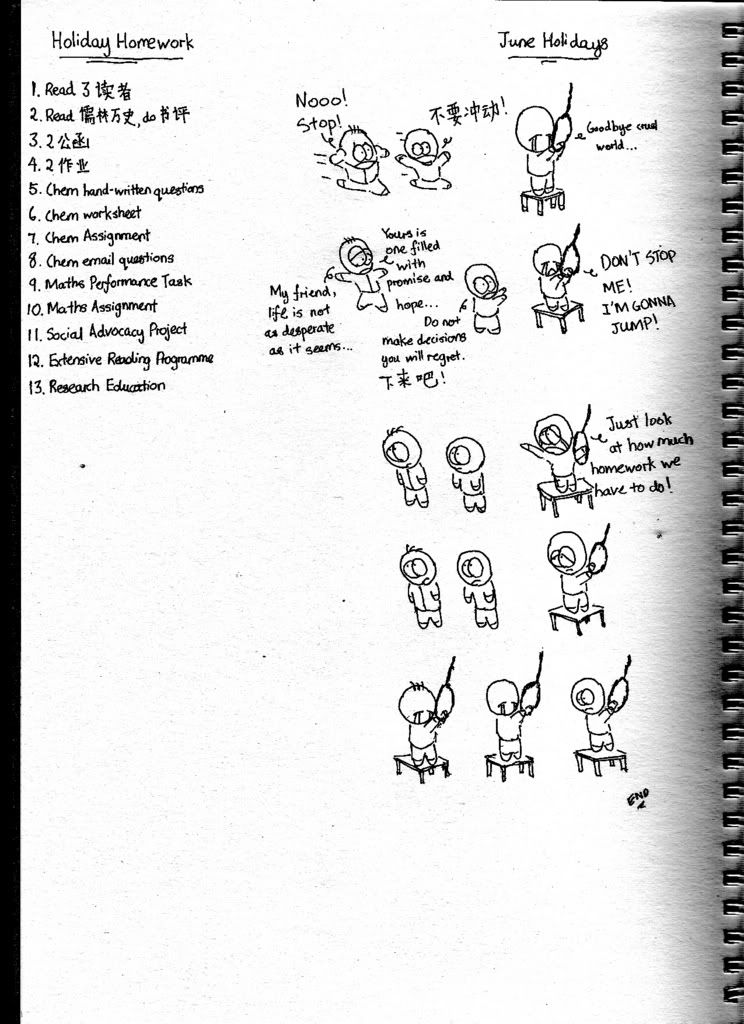 Holiday Homework
June Holidays
1. Read 3 读者
2. Read 儒林历史, do 书评
3. 2 公函
4. 2 作业
5. Chem hand-written questions
6. Chem worksheet
7. Chem Assignment
8. Chem email questions
9. Maths Performance Task
10. Maths Assignment
11. Social Advocacy Project
12. Extensive Reading Programme
13. Research Education
Nooo!
Stop!
不要冲动!
Goodbye cruel
world...
My friend,
life is not
as desperate
as it seems...
Yours is
one filled
with
promise and
hope...
Do not
make decisions
you will regret.
下来吧!
DON'T STOP
ME!
I'M GONNA
JUMP!
Just look
at how much
homework we
have to do!
END